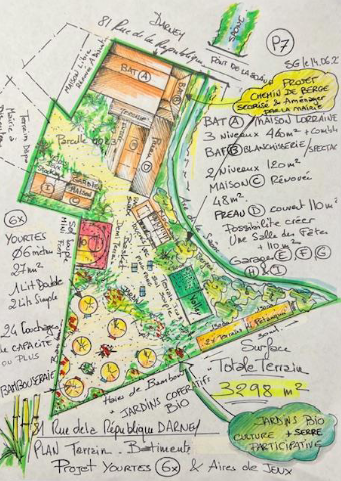 DARNEY
81 Rue de la République
P7
SG le 14.06.2
PROJET
CHEMIN DE BERGE
SECURISE & AMÉNAGER
par la mairie
BAT A MAISON LORRAINE
3 Niveaux 460 m² + Combles
BAT B BLANCHISSERIE / SPECTAC
2 Niveaux 120 m²
MAISON C Rénovée
48 m²
PREAU D couvert 110 m²
Possibilité créer
Une Salle des Fêtes
+ 110 m²
Garages E F G
H & I
BAT A
BAT B
Parcelle
6x
YOURTES
Ø 6 mètre
27 m²
1 Lit Double
2 Lits Simple
24 Couchages
de CAPACITÉ
OU PLUS
BAMBOUSERAIE
Haies de Bambous
JARDINS
BIO
2x Terrains de Pétanques
Surface
Totale Terrain
3298 m²
JARDINS BIO
CULTURE + SERRE
PARTICIPATIVE
81 Rue de la République DARNEY
PLAN Terrain. Batiments
Projet YOURTES 6x & Aires de JEUX